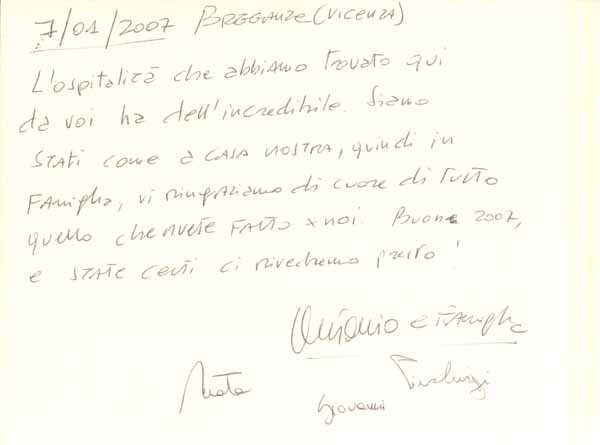 7/01/2007 BREGANZE (VICENZA)
L'ospitalità che abbiamo trovato qui
da voi ha dell'incredibile. Siamo
STATI come a CASA NOSTRA, quindi in
FAMiglia, vi ringraziamo di cuore di TUTTO
quello che avete FATTO x noi. Buon 2007,
e STATE certi ci rivedremo presto!
Antonio e FAMiglia
Pierluigi
Giovanni